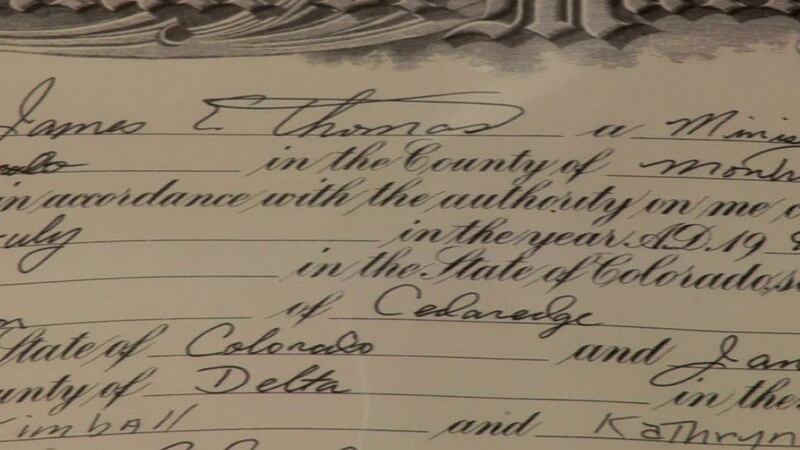 James E Thomas a Minis
in the County of Mont
in accordance with the authority on me
July in the year A.D. 19
in the State of Colorado, s
of Cedaredge
State of Colorado and Jan
unty of Delta in the
Kimball and Kathryn